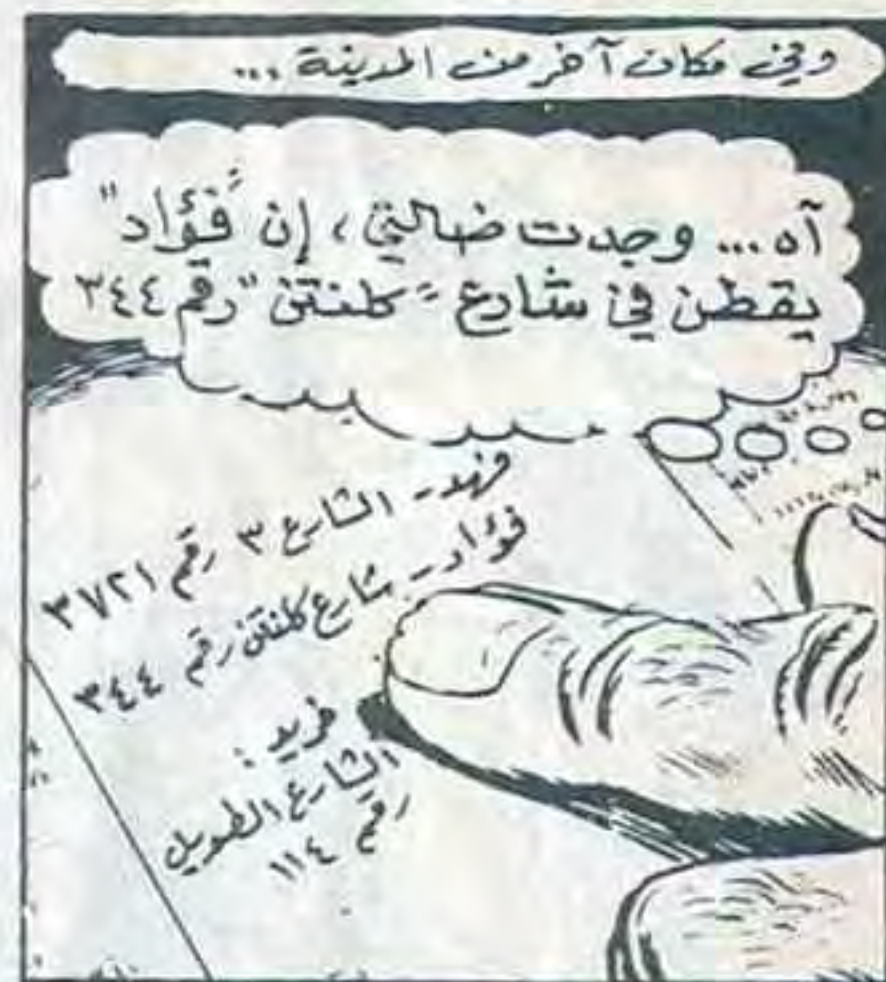 وفي مكان آخر من المدينة ...
آه ... وجدت ضالتي ، إن "فؤاد"
يقطن في شارع "كلنتن" رقم ٣٤٤
فهد - الشارع ٣ رقم ٣٧٢١
فؤاد - شارع كلنتن رقم ٣٤٤
فريد :
الشارع الطويل
رقم ١١٤